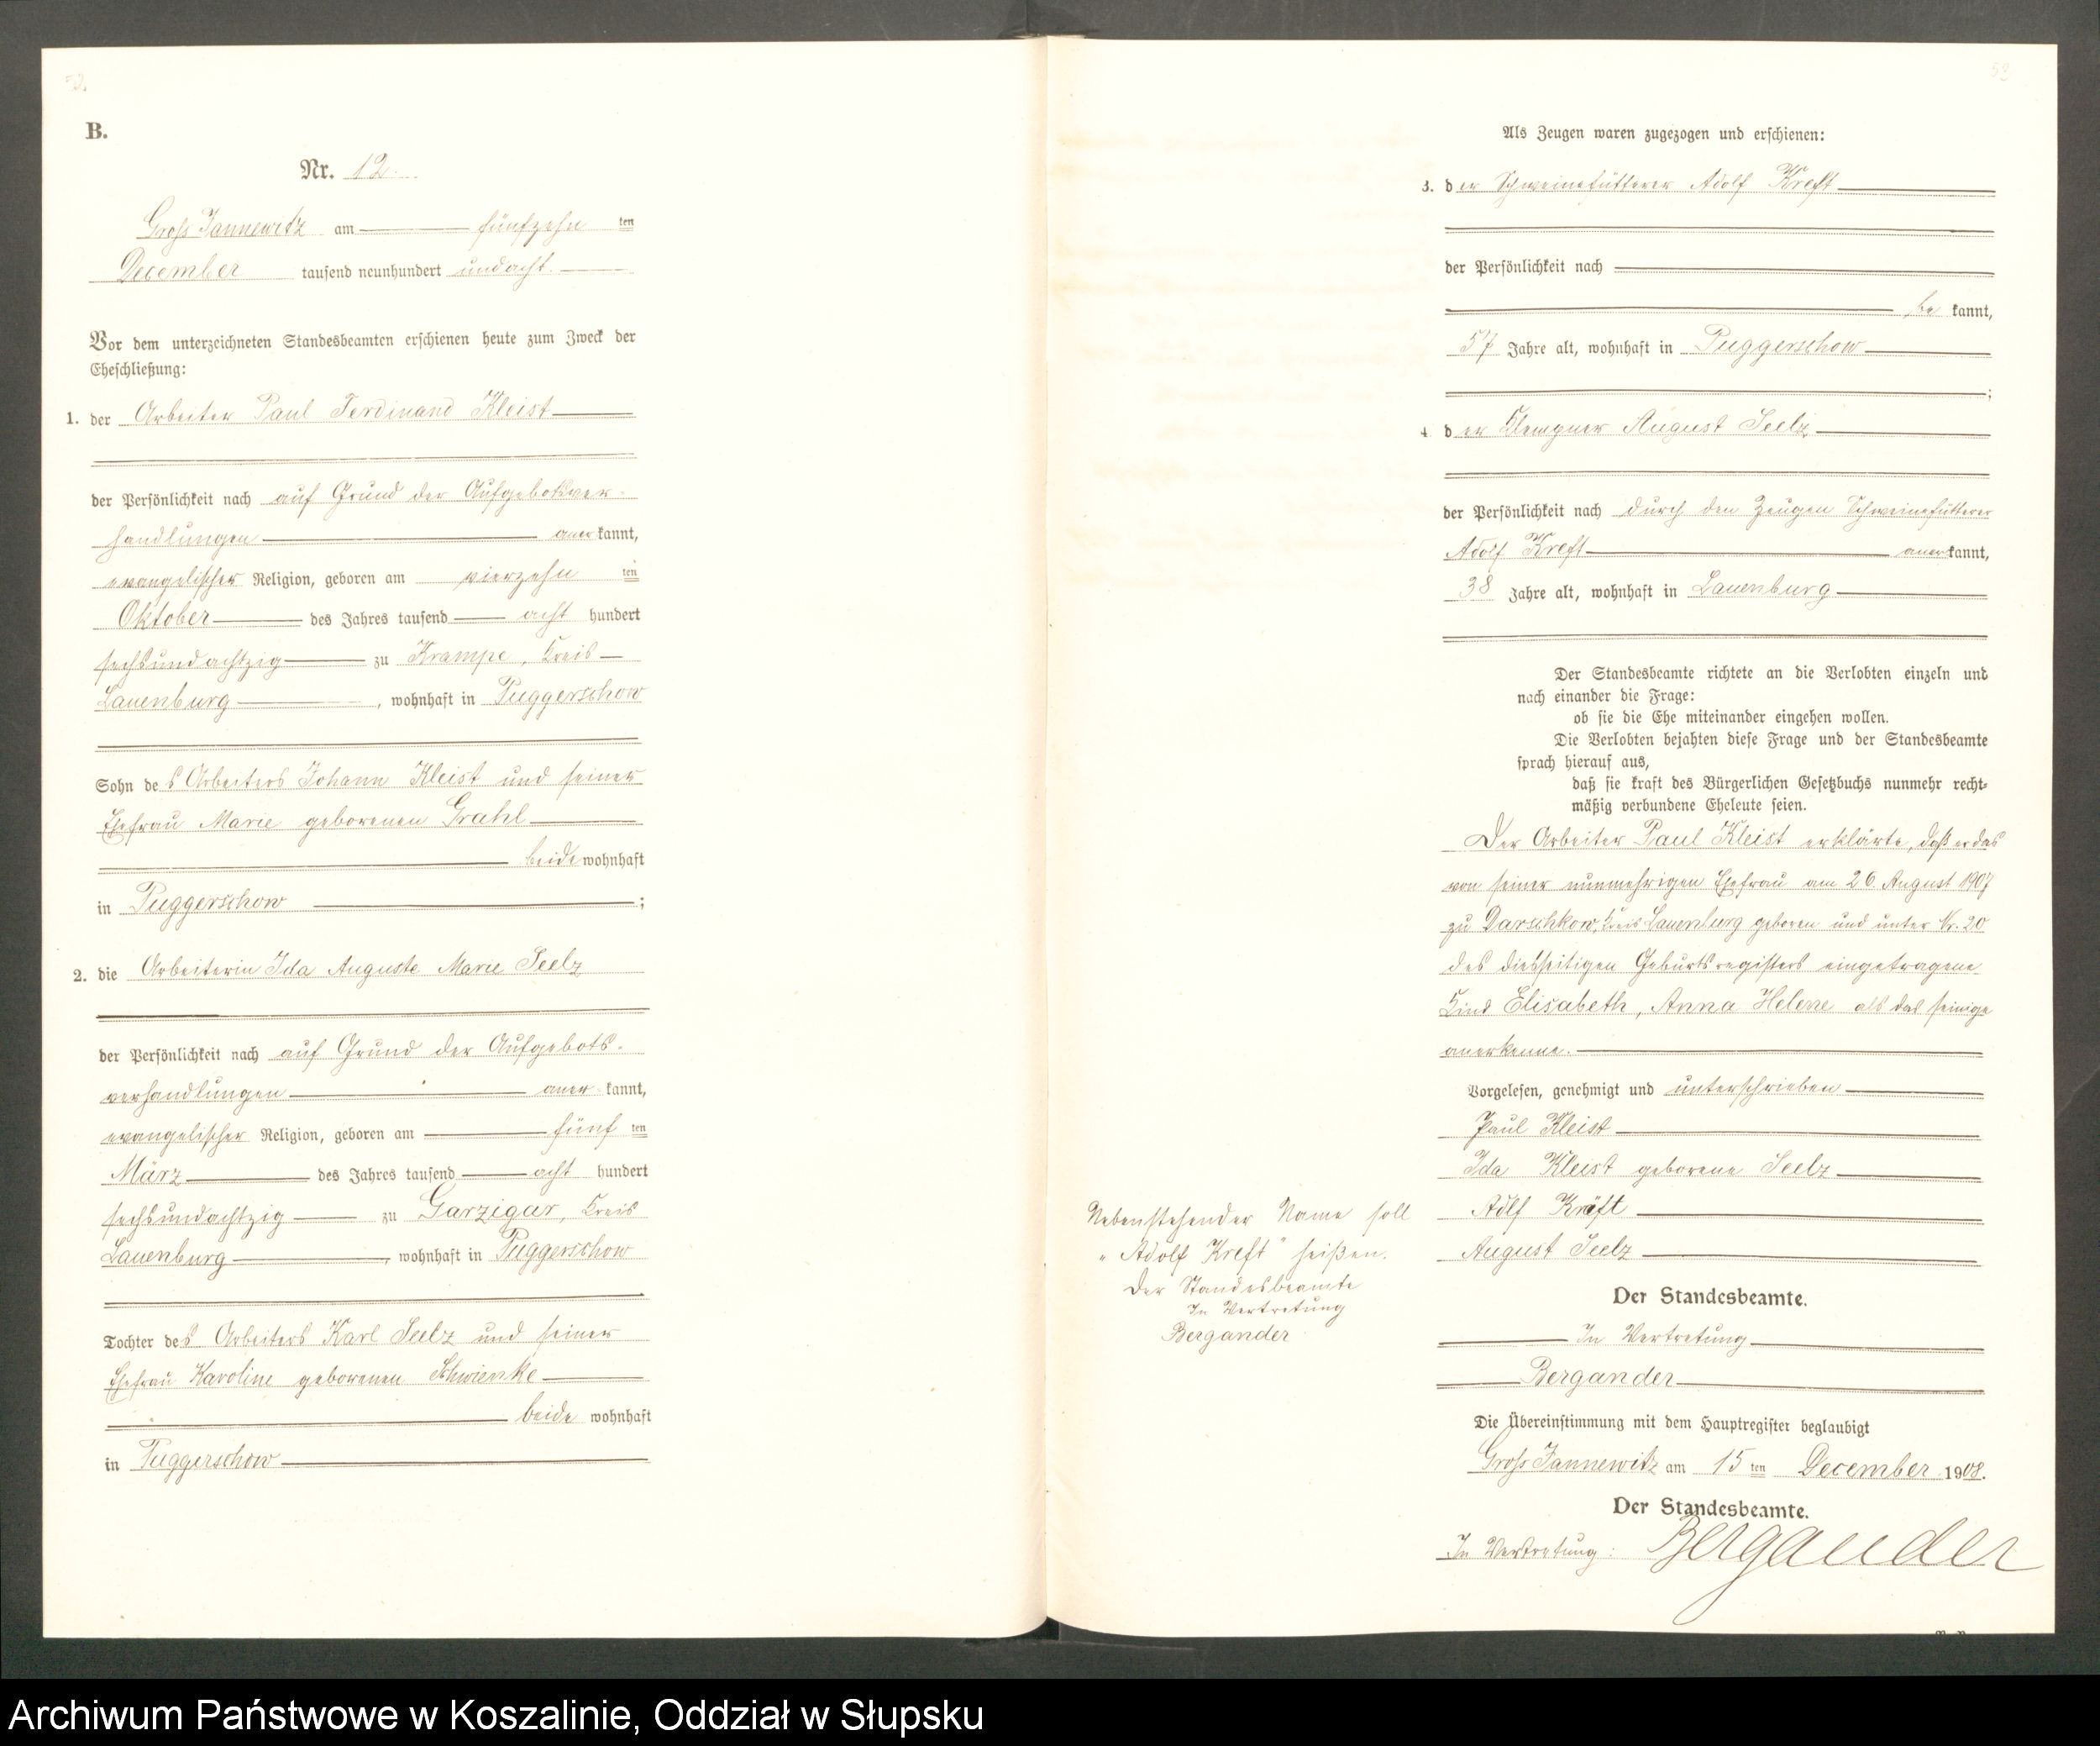 B.
Nr. 12.
Gross Jannewitz am fünfzehn ten
December tausend neunhundert undacht.
Vor dem unterzeichneten Standesbeamten erschienen heute zum Zweck der
Eheschließung:
1. der Arbeiter Paul Ferdinand Kleist
der Persönlichkeit nach auf Grund der Aufgebotsver-
handlungen anerkannt,
evangelischer Religion, geboren am vierzehn ten
Oktober des Jahres tausend acht hundert
sechsundachtzig zu Krampe, Kreis
Lauenburg, wohnhaft in Puggerschow
Sohn des Arbeiters Johann Kleist und seiner
Ehefrau Marie geborenen Grahl
beide wohnhaft
in Puggerschow;
2. die Arbeiterin Ida Auguste Marie Seelz
der Persönlichkeit nach auf Grund der Aufgebots-
verhandlungen anerkannt,
evangelischer Religion, geboren am fünf ten
März des Jahres tausend acht hundert
sechsundachtzig zu Garzigar, Kreis
Lauenburg, wohnhaft in Puggerschow
Tochter des Arbeiters Karl Seelz und seiner
Ehefrau Karoline geborenen Schwienke
beide wohnhaft
in Puggerschow
Als Zeugen waren zugezogen und erschienen:
3. der Schweinefütterer Adolf Kreft
der Persönlichkeit nach
bekannt,
57 Jahre alt, wohnhaft in Puggerschow
;
4. der Klempner August Seelz
der Persönlichkeit nach durch den Zeugen Schweinefütterer
Adolf Kreft anerkannt,
38 Jahre alt, wohnhaft in Lauenburg
Der Standesbeamte richtete an die Verlobten einzeln und
nach einander die Frage:
ob sie die Ehe miteinander eingehen wollen.
Die Verlobten bejahten diese Frage und der Standesbeamte
sprach hierauf aus,
daß sie kraft des Bürgerlichen Gesetzbuchs nunmehr recht-
mäßig verbundene Eheleute seien.
Der Arbeiter Paul Kleist erklärte, daß er das
von seiner nunmehrigen Ehefrau am 26. August 1907
zu Darschkow, Kreis Lauenburg geboren und unter Nr. 20
des diesseitigen Geburtsregisters eingetragene
Kind Elisabeth, Anna Helene als das seinige
anerkenne.
Vorgelesen, genehmigt und unterschrieben
Paul Kleist
Ida Kleist geborene Seelz
Adlf Kräft
August Seelz
Nebenstehender Name soll
"Adolf Kreft" heißen.
Der Standesbeamte
In Vertretung
Bergander
Der Standesbeamte.
In Vertretung
Bergander
Die Übereinstimmung mit dem Hauptregister beglaubigt
Gross Jannewitz am 15 ten December 1908.
Der Standesbeamte.
In Vertretung: Bergander
Archiwum Państwowe w Koszalinie, Oddział w Słupsku